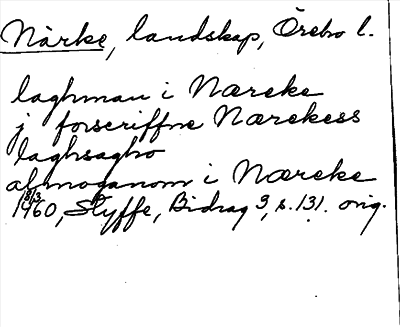 Närke, landskap, Örebro l.
laghman i Næreke
j forscriffne Nærekess
laghsagho
almoganom i Næreke
18/3
1460, Styffe, Bidrag 3, s. 131. orig.